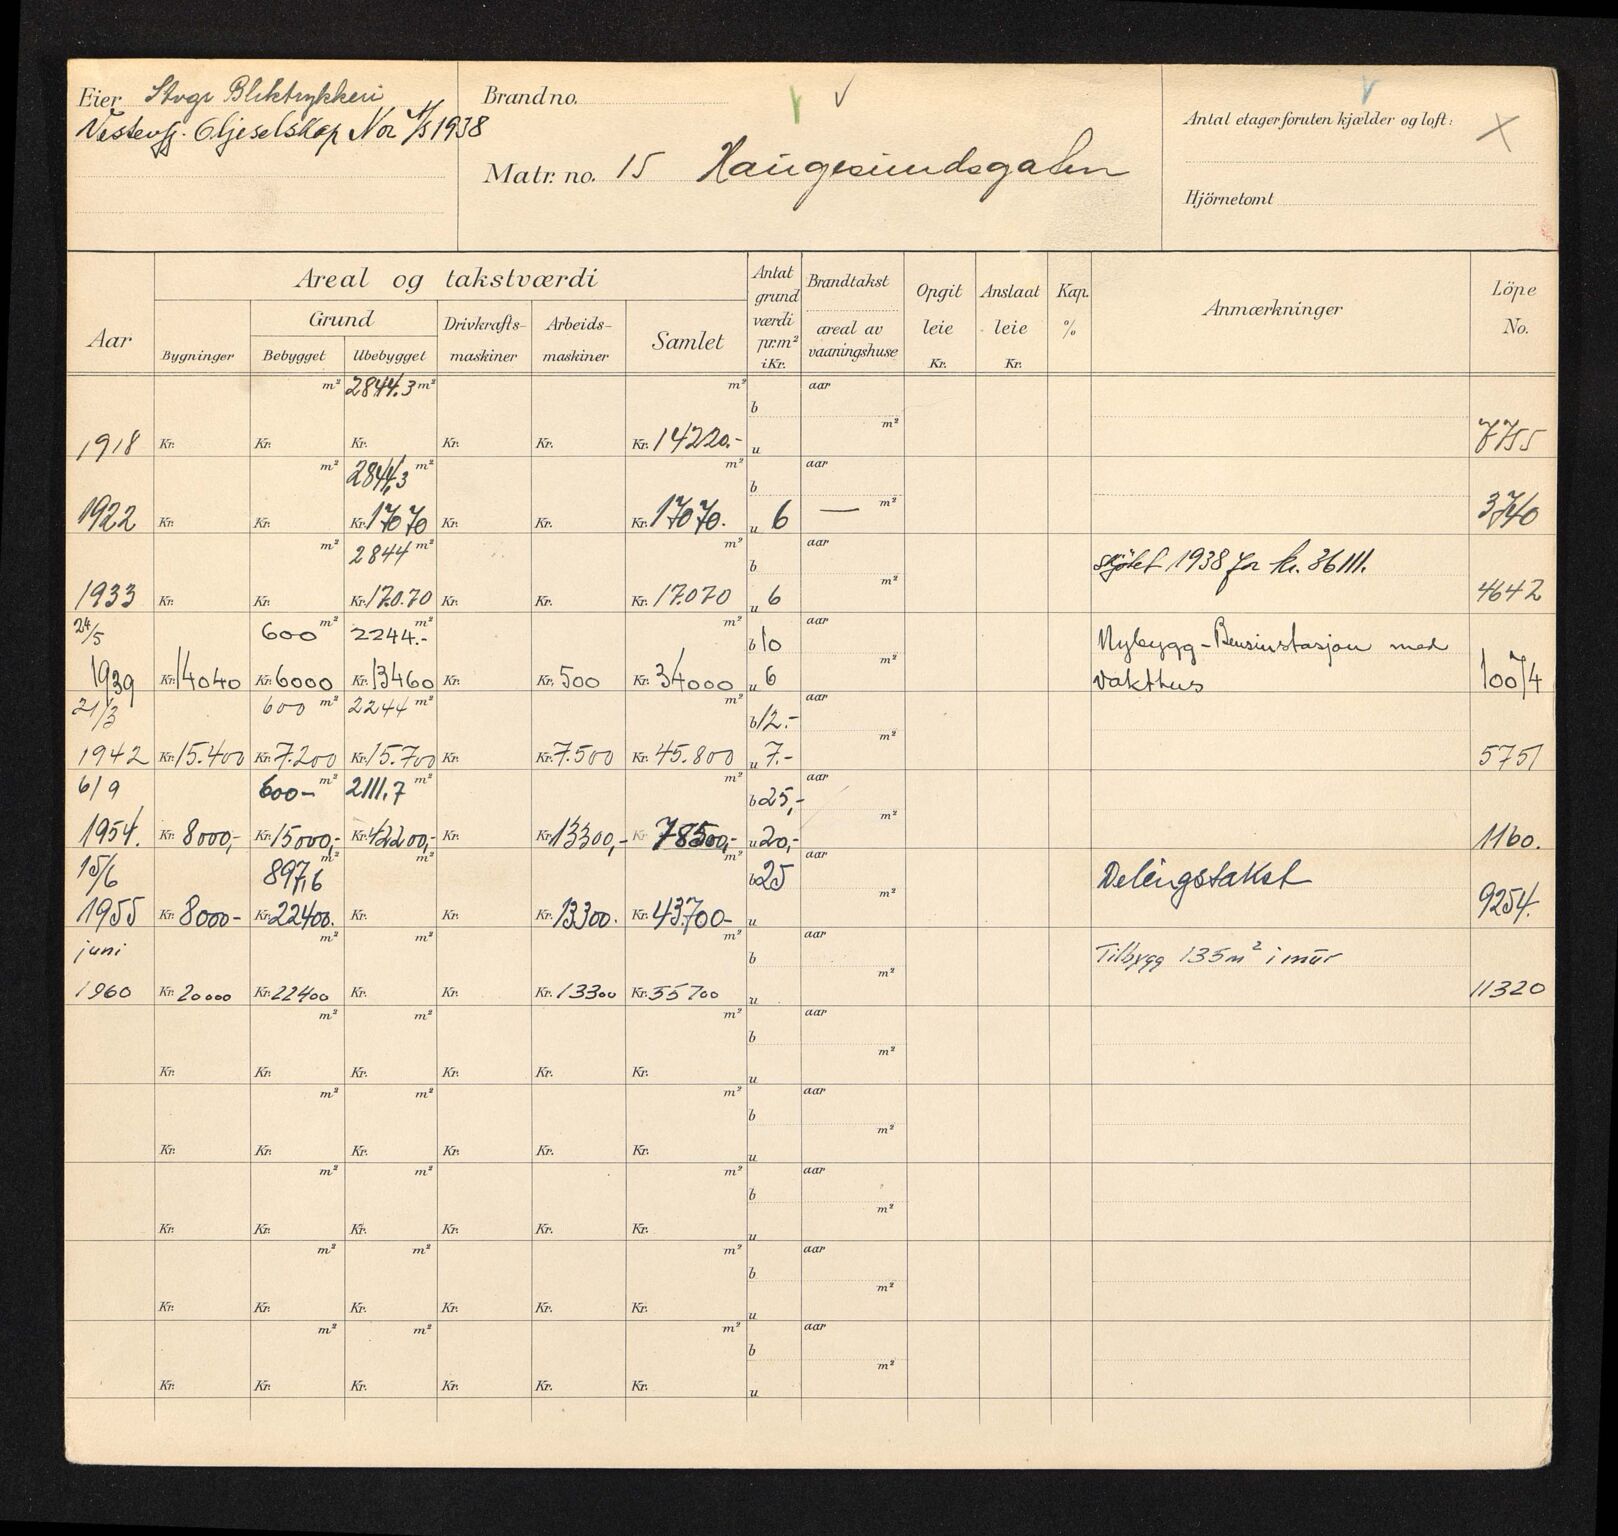 Eier Stvgr Bliktrykkeri
Vestenfj. Oljeselskap Nor A/S 1938
Brand no.
Matr. no. 15 Haugesundsgaten
Antal etager foruten kjælder og loft: X
Hjörnetomt
Aar
Areal og takstværdi
Bygninger
Grund
Bebygget
Ubebygget
Drivkrafts-maskiner
Arbeids-maskiner
Samlet
Antat grund værdi pr. m² i Kr.
Brandtakst
areal av vaaningshuse
Opgit leie Kr.
Anslaat leie Kr.
Kap. %
Anmærkninger
Löpe No.
m² 2844.3 m² m² aar
b m²
1918 Kr. Kr. Kr. Kr. Kr. Kr. 14220.- u 7755
m² 2844,3 m² m² aar
b m²
1922 Kr. Kr. Kr. 17070 Kr. Kr. Kr. 17070. u 6 — 3740
m² 2844 m² m² aar
b m² skjötet 1938 for kr. 36111.
1933 Kr. Kr. Kr. 17.070 Kr. Kr. Kr. 17.070 u 6 4642
24/5 600 m² 2244.- m² m² aar
b 10 m² Nybygg - Bensinstasjon med
1939 Kr. 14040 Kr. 6000 Kr. 13460 Kr. Kr. 500 Kr. 34000 u 6 vakthus 10074
21/3 600 m² 2244 m² m² aar
b 12.- m²
1942 Kr. 15.400 Kr. 7.200 Kr. 15.700 Kr. Kr. 7.500 Kr. 45.800 u 7.- 5751
6/9 600- m² 2111.7 m² m² aar
b 25,- m²
1954. Kr. 8000,- Kr. 15000,- Kr. 42200,- Kr. Kr. 13300,- Kr. 78500,- u 20,- 1160.
15/6 897,6 m² m² m² aar
b 25 m² Delingstakst
1955 Kr. 8000- Kr. 22400. Kr. Kr. Kr. 13300. Kr. 43700- u 9254.
juni m² m² m² aar
b m² Tilbygg 135 m² i mur
1960 Kr. 20000 Kr. 22400 Kr. Kr. Kr. 13300 Kr. 55700 u 11320
m² m² m² aar
b m²
Kr. Kr. Kr. Kr. Kr. Kr. u
m² m² m² aar
b m²
Kr. Kr. Kr. Kr. Kr. Kr. u
m² m² m² aar
b m²
Kr. Kr. Kr. Kr. Kr. Kr. u
m² m² m² aar
b m²
Kr. Kr. Kr. Kr. Kr. Kr. u
m² m² m² aar
b m²
Kr. Kr. Kr. Kr. Kr. Kr. u